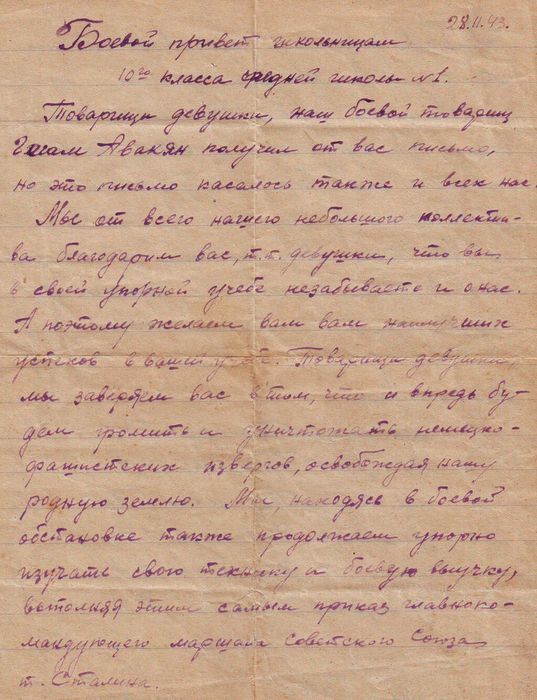 28.11.43.
Боевой привет школьницам
10го класса средней школы №1.
Товарищи девушки, наш боевой товарищ
Авакян получил от вас письмо,
но это письмо касалось также и всех нас.
Мы от всего нашего небольшого коллекти-
ва благодарим вас, т.т. девушки, что вы
в своей упорной учебе незабываете и о нас.
А поэтому желаем вам вам наилучших
успехов в вашей учебе. Товарищи девушки
мы заверяем вас в том, что и впредь бу-
дем громить и уничтожать немецко-
фашистских извергов, освобождая нашу
родную землю. Мы, находясь в боевой
обстановке также продолжаем упорно
изучать свою технику и боевую выучку,
выполняя этим самым приказ главноко-
мандующего маршала советского Союза
т. Сталина.